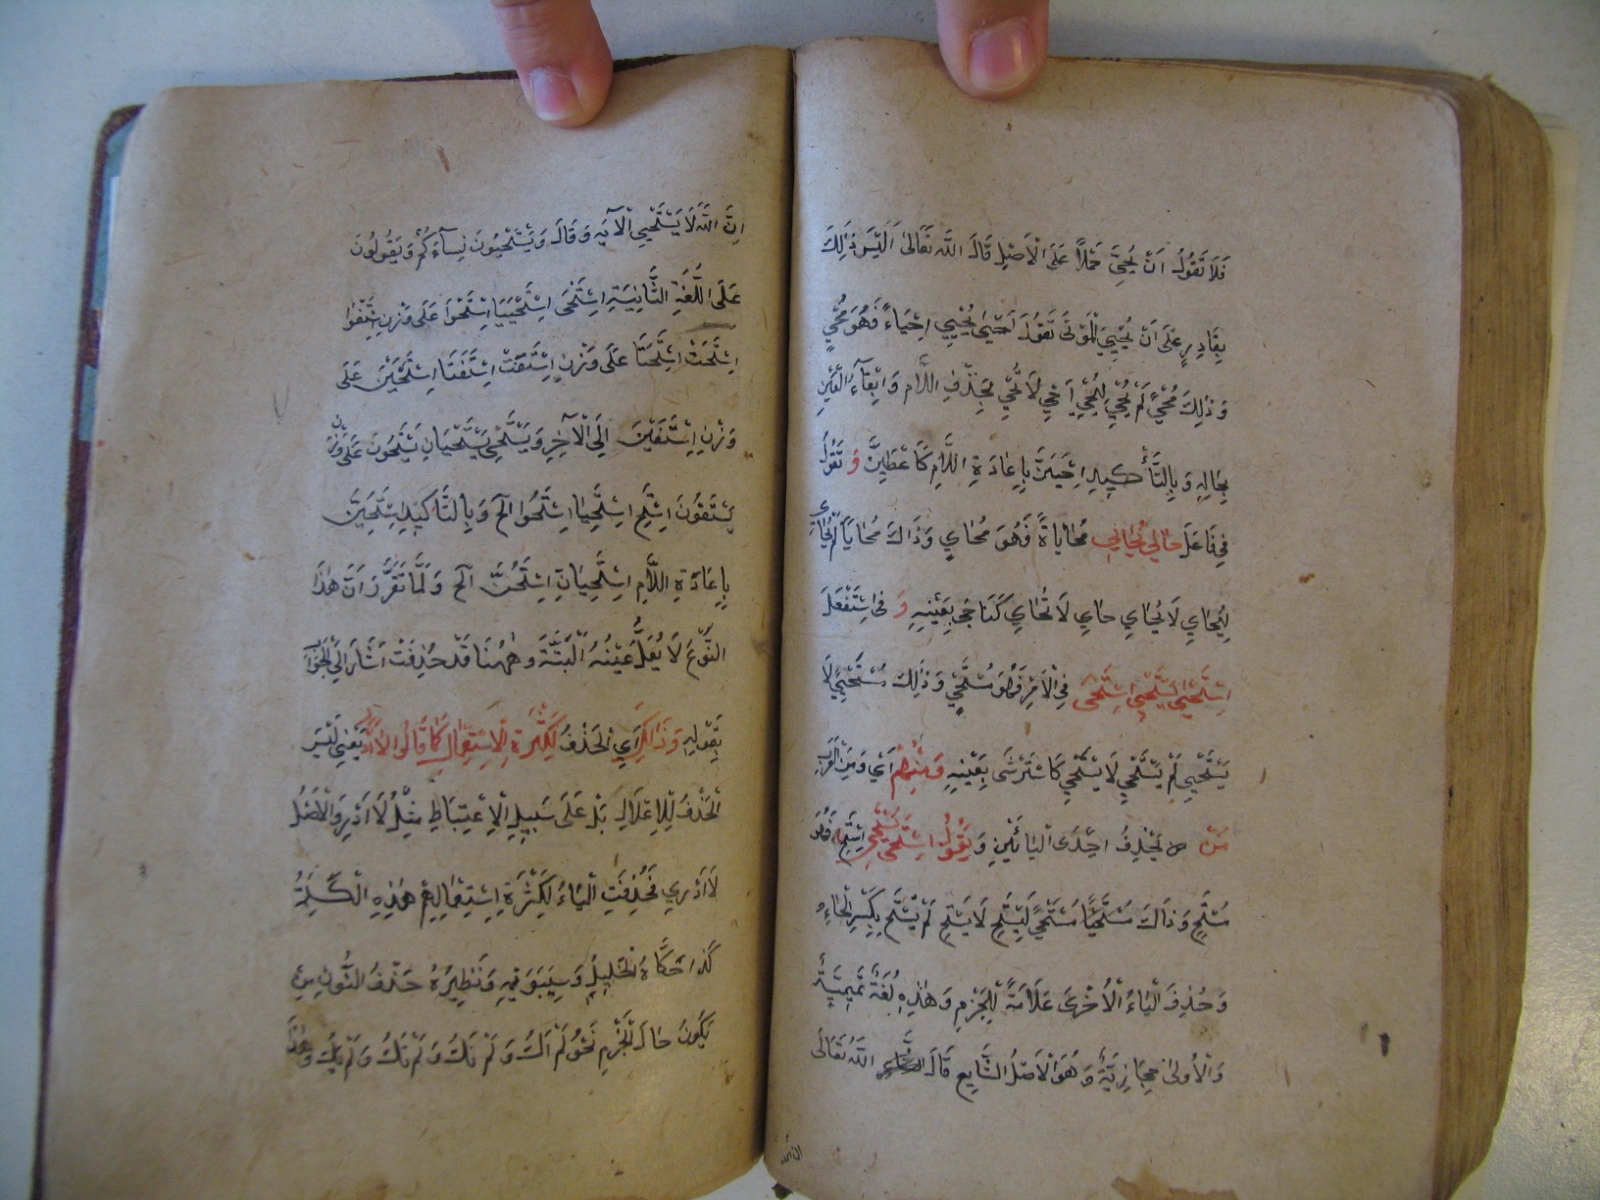 فَلَا تَقُولُ اَنْ يُحِيَّ حَمْلًا عَلَى الْاَصْلِ قَالَ اللّٰه تَعَالىٰ اَلَيْسَ ذٰلِكَ
بِقَادِرٍ عَلىٰ اَنْ يُحْيِيَ الْمَوْتىٰ تَقُولُ اَحْيىٰ يُحْيِي اِحْيَاءً فَهُوَ مُحْيٍ
وَذٰلِكَ مُحْيًى لَمْ يُحْيِ لِيُحْيِ اَحْيِ لَا تُحْيِ بِحَذْفِ اللَّامِ وَاِبْقَاءِ الْعَيْنِ
بِحَالِهِ وَبِالتَّأْكِيدِ اَحْيِيَنَّ بِاِعَادَةِ اللَّامِ كَاَعْطِيَنَّ وَ تَقُولُ
فِي فَاعَلَ حَايىٰ يُحَايِي مُحَايَاةً فَهُوَ مُحَايٍ وَذَاكَ مُحَايًا لَمْ يُحَايِ
لِيُحَايِ لَا يُحَايِ حَايِ لَا تُحَايِ كَنَاجىٰ بِعَيْنِهِ وَ فِي اسْتَفْعَلَ
اِسْتَحْيىٰ يَسْتَحْيِي اِسْتَحْيِ فِي الْاَمْرِ فَهُوَ مُسْتَحْيٍ وَذٰلِكَ مُسْتَحْيًى لَا
يَسْتَحْيِي لَمْ يَسْتَحْيِ لَا يَسْتَحْيِ كَاسْتَرْشىٰ بِعَيْنِهِ وَمِنْهُمْ اَيْ وَمِنَ الْعَرَبِ
مَنْ يَحْذِفُ اِحْدَى الْيَائَيْنِ وَ يَقُولُ اِسْتَحىٰ يَسْتَحِي اِسْتَحِ فَهُوَ
مُسْتَحٍ وَذَاكَ مُسْتَحًى لِيَسْتَحِ لَا يَسْتَحِ لَمْ يَسْتَحِ بِكَسْرِ الْحَاءِ
وَحُذِفَ الْيَاءُ الْاُخْرىٰ عَلَامَةً لِلْجَزْمِ وَهٰذِهِ لُغَةٌ تَمِيمِيَّةٌ
وَالْاُولىٰ حِجَازِيَّةٌ وَهُوَ الْاَصْلُ الشَّايِعُ قَالَ اللّٰهُ تَعَالىٰ
ان الله
اِنَّ اللّٰهَ لَا يَسْتَحْيِي الْاٰيَه وَقَالَ وَيَسْتَحْيُونَ نِسَآءَكُمْ وَيَقُولُونَ
عَلَى اللُّغَةِ الثَّانِيَةِ اِسْتَحىٰ اِسْتَحَيَا اِسْتَحَوْا عَلىٰ وَزْنِ
اِسْتَحَتْ اِسْتَحَتَا عَلىٰ وَزْنِ اِسْتَفَتْ اِسْتَفَتَا اِسْتَحَيْنَ عَلىٰ
وَزْنِ اِسْتَفَيْنَ اِلَى الْاٰخِرِ وَيَسْتَحِي يَسْتَحِيَانِ يَسْتَحُونَ عَلىٰ وَزْنِ
يَسْتَفُونَ اِسْتَحِ اِسْتَحِيَا اِسْتَحُوا الخ وَبِالتَّأكِيدِ اِسْتَحِيَنَّ
بِاِعَادَةِ اللَّامِ اِسْتَحِيَانِّ اِسْتَحُنَّ الخ وَلَمَّا تَقَرَّرَ اَنَّ هٰذَا
النَّوْعَ لَا يُعَلُّ عَيْنُهُ اَلْبَتَّةَ وَهٰهُنَا قَدْ حُذِفَتْ اَشَارَ اِلَى الْجَوَابِ
بِقَوْلِهِ وَذٰلِكَ اَيْ الْحَذْفُ لِكَثْرَةِ الْاِسْتِعْمَالِ كَمَا قَالُوا لَا اَدْرِ يَعْنِي لَيْسَ
الْحَذْفُ لِلْاِعْلَالِ بَلْ عَلىٰ سَبِيلِ الْاِعْتِبَاطِ مِثْلُ لَا اَدْرِ وَالْاَصْلُ
لَا اَدْرِي فَحُذِفَتِ الْيَاءُ لِكَثْرَةِ اِسْتِعْمَالِهِمْ هٰذِهِ الْكَلِمَةُ
كَذَا حَكَاهُ الْخَلِيلُ وَسِيبَوَيْهِ وَنَظِيرُهُ حَذْفُ النُّونِ مِنْ
يَكُونُ حَالَ الْجَزْمِ نَحْوُ لَمْ اَكُ وَلَمْ نَكُ وَلَمْ تَكُ وَلَمْ يَكُ وَهٰذَا